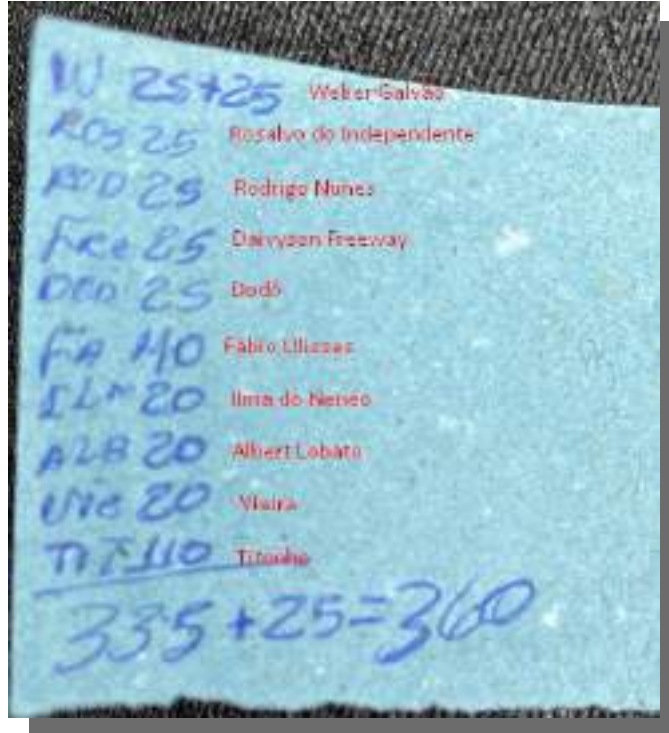 W 25+25 Weber Galvão
ROS 25 Rosalvo do Independente
ROD 25 Rodrigo Nunes
FRE 25 Freeway
DOD 25 Dodô
FA 40 Fábio Ulisses
ILM 20 Ilma do
ALB 20 Albert Lobato
VIE 20 Vieira
TIT 110
335+25=360